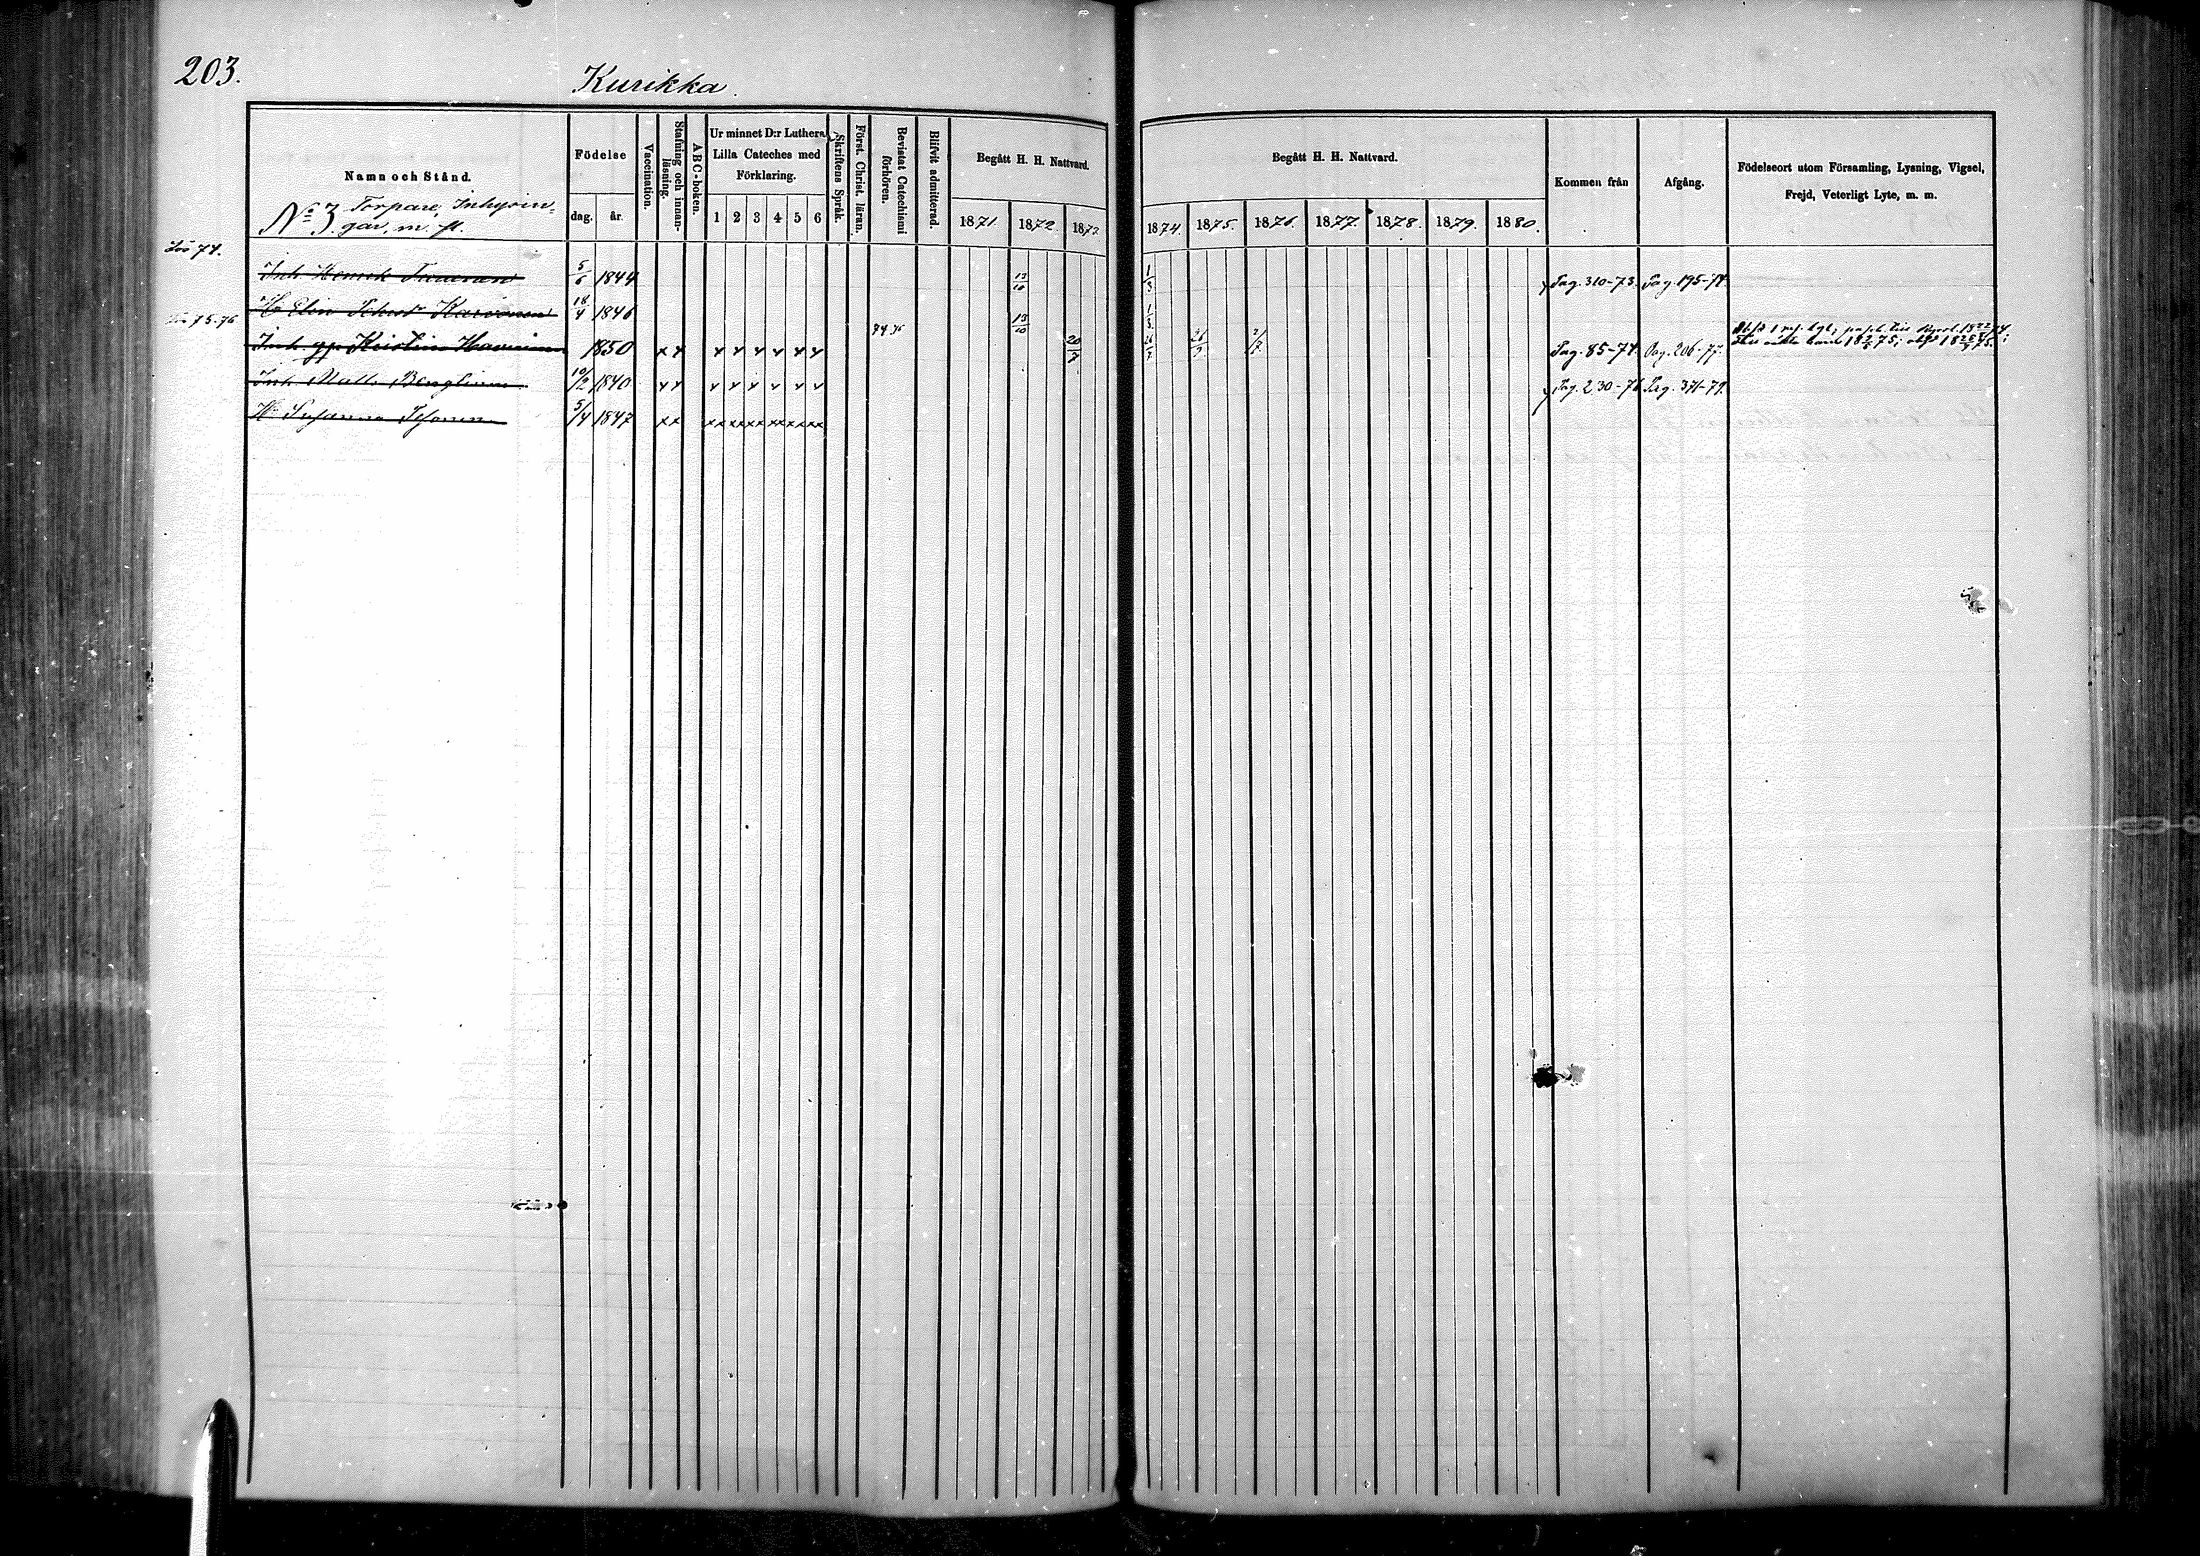 203.
Kurikka
Namn och Stånd.
Födelse
dag. år.
Vaccination.
Stafning och innanläsning.
ABC-boken.
Ur minnet D:r Luthers
Lilla Cateches med
Förklaring.
1 2 3 4 5 6
Skriftens Språk.
Först. Christ. läran.
Bevistat Catechismi förhören.
Blifvit admitterad.
Begått H. H. Nattvard.
1871. 1872. 1873.
Begått H. H. Nattvard.
1874. 1875. 1876. 1877. 1878. 1879. 1880.
Kommen från
Afgång.
Födelseort utom Församling, Lysning, Vigsel,
Frejd, Veterligt Lyte, m. m.
No 3. Torpare, Inhysin-
gar, m. fl.
74.
Inh. Henrik 5/6 1844 13/10 1/3 Pag. 310-73. Pag. 195-74.
75-76
Hu Elin Karvonen 18/4 1846 13/10 1/3
Inh. Kristina 1850 x x x x x x x x 20/7 26/7 2/7 Pag. 85-74. Pag. 206-77.
Inh. Matt. 10/2 1840 x x x x x x x x Pag. 230-76 Pag. 371-79.
Hu Susanna 5/4 1847 x x xx xx xx xx xx xx